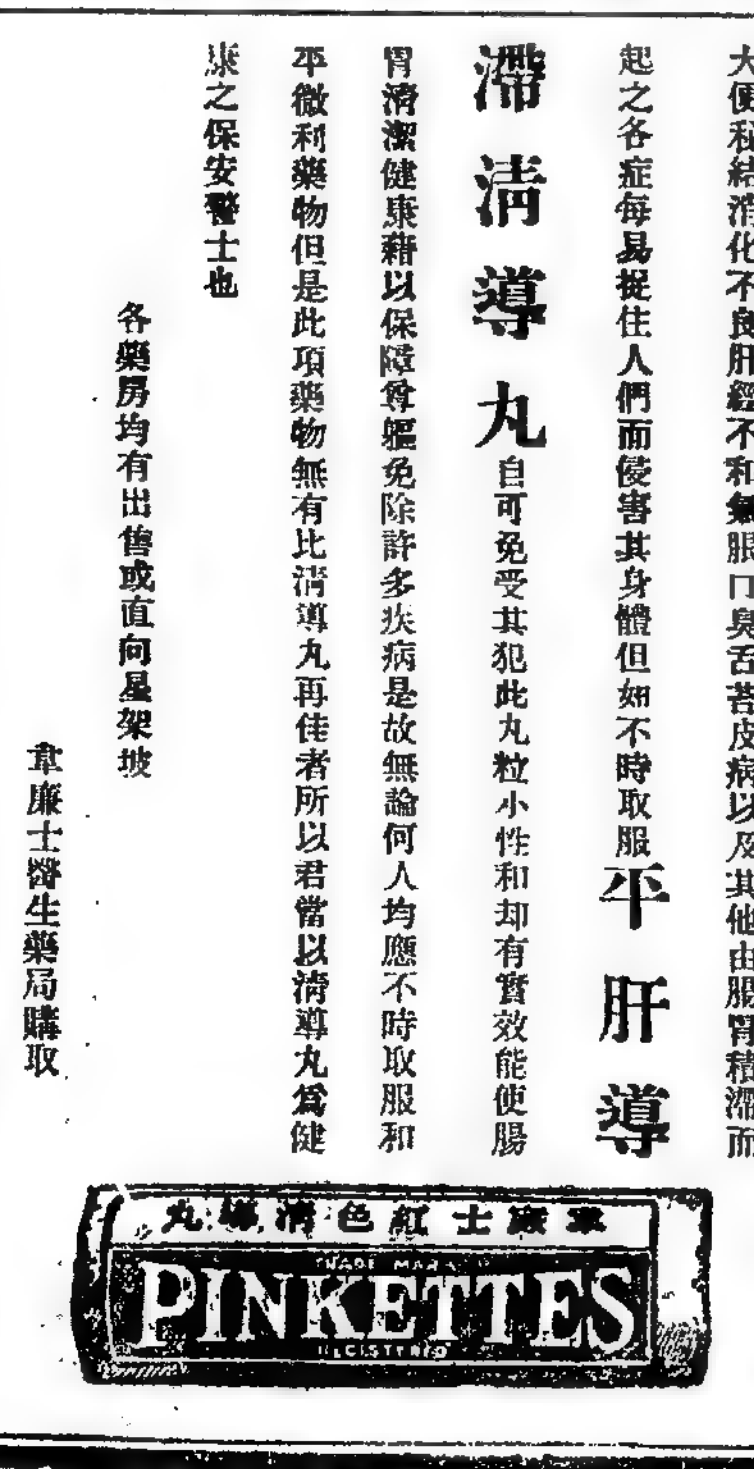 大便秘結消化不良肝經不和氣脹口臭舌苔皮病以及其他由腸胃積滯而
起之各症每易捉住人們而侵害其身體但如不時取服平肝導
滯清導丸自可免受其犯此丸粒小性和却有實效能使腸
胃清潔健康藉以保障尊軀免除許多疾病是故無論何人均應不時取服和
平微利藥物但是此項藥物無有比清導丸再佳者所以君當以清導丸爲健
康之保安醫士也
各藥房均有出售或直向星架坡
韋廉士醫生藥局購取
韋廉士紅色清導丸
TRADE MARK
PINKETTES
REGISTERED